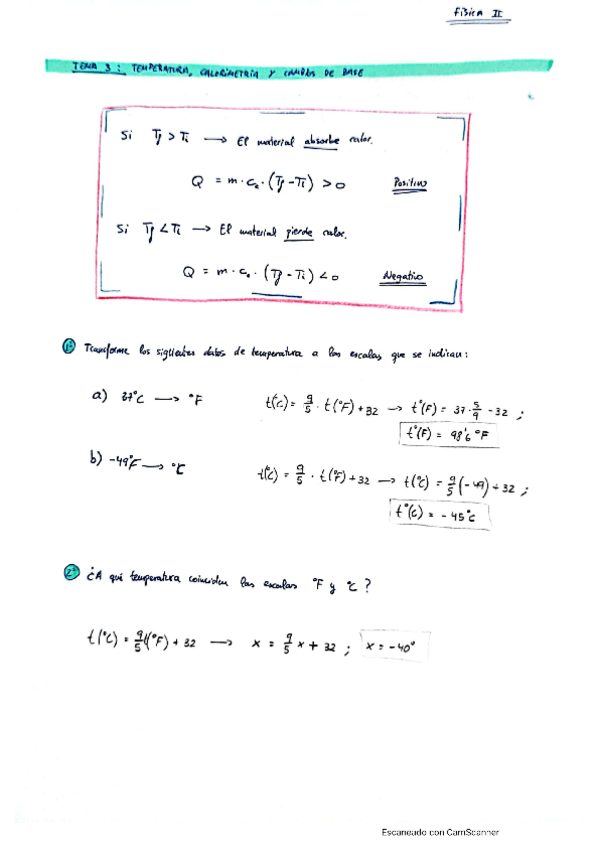 Física II
TEMA 3: TEMPERATURA, CALORIMETRÍA Y CAMBIOS DE BASE
Si Tf > Ti → El material absorbe calor.
Q = m · ce · (Tf - Ti) > 0 Positivo
Si Tf < Ti → El material pierde calor.
Q = m · ce · (Tf - Ti) < 0 Negativo
1) Transforme los siguientes datos de temperatura a las escalas que se indican:
a) 37°C → °F t(°C) = 9/5 · t(°F) + 32 → t°(F) = 37 · 5/9 - 32 ;
t°(F) = 98'6 °F
b) -49°F → °C t(°C) = 9/5 · t(°F) + 32 → t(°C) = 9/5 (-49) + 32 ;
t°(C) = -45°C
2) ¿A qué temperatura coinciden las escalas °F y °C ?
t(°C) = 9/5 t(°F) + 32 → x = 9/5 x + 32 ; x = -40°
Escaneado con CamScanner